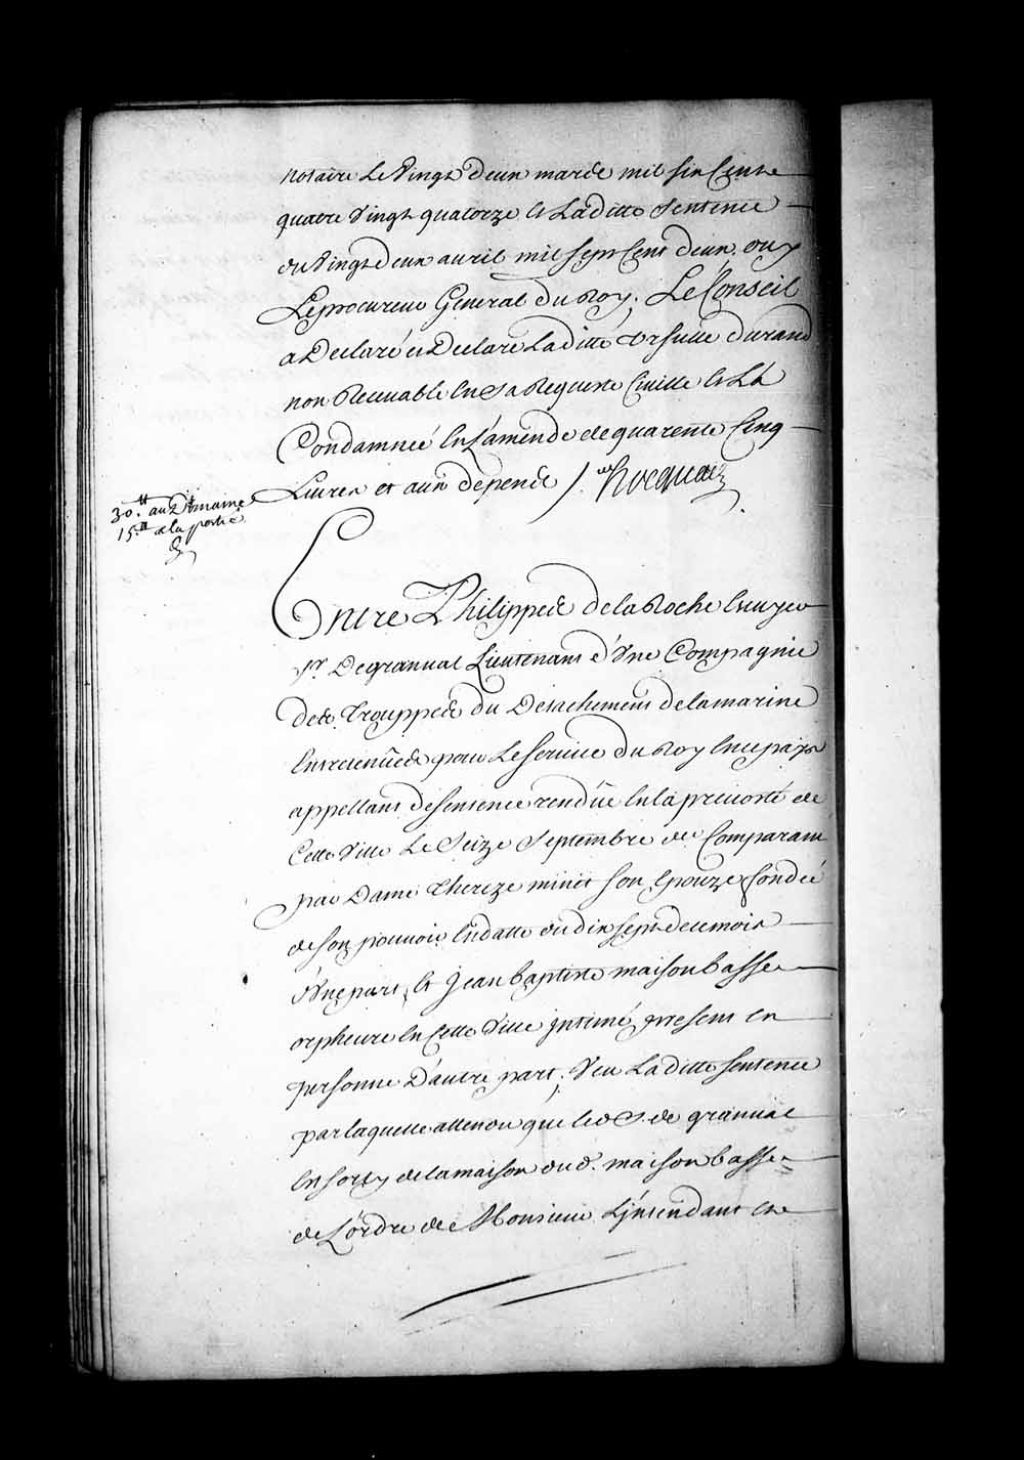 notaire Le Vingt deux mars mil six Cents
quatre Vingt quatorze et Laditte Sentence
du Vingt deux avril mil sept Cent deux. ouy
Le procureur General du Roy, Le Conseil
a Declaré et Declare Laditte Ursulle Durand
non Recevable En Sa Requeste Civille et L'a
Condamneé En L'amende de quarente Cinq
Livres et aux depens /. Rocquart
30.lt au Domaine
15.lt a la partie
Entre Philippes de la Roche Escuyer
Sr. De granval Lieutenant d'Une Compagnie
des Trouppes du Detachement de la marine
Entretenües pour Le Service du Roy En ce païs
appellant de Sentence rendüe En la prevosté de
Cette Ville Le Seize Septembre der Comparant
par Dame Thereze minet son Epouze fondée
de son pouvoir En datte du dix sept de ce mois
d'Une part, Et Jean baptiste maisonbasse
orpheure En Cette Ville jntimé present en
personne D'autre part; Veu La ditte sentence
par laquelle attendu que led S. de granval
En sorty de la maison dud. maisonbasse
de L'ordre de Monsieur L'jntendant en